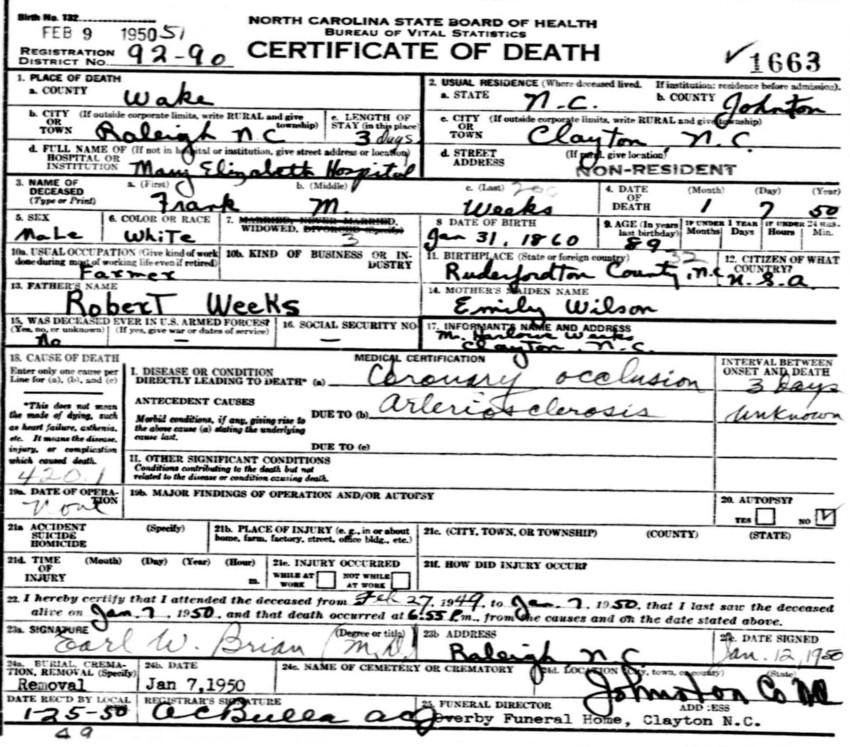 Birth No. 132
FEB 9 1950 51
NORTH CAROLINA STATE BOARD OF HEALTH
BUREAU OF VITAL STATISTICS
REGISTRATION DISTRICT No. 92-90
CERTIFICATE OF DEATH
✓1663
1. PLACE OF DEATH
a. COUNTY Wake
2. USUAL RESIDENCE (Where deceased lived. If institution: residence before admission).
a. STATE N.C. b. COUNTY Johnton
b. CITY (If outside corporate limits, write RURAL and give township) OR TOWN Raleigh N C
c. LENGTH OF STAY (in this place) 3 days
c. CITY (If outside corporate limits, write RURAL and give township) OR TOWN Clayton, N.C.
d. FULL NAME OF (If not in hospital or institution, give street address or location) HOSPITAL OR INSTITUTION Mary Elizabeth Hospital
d. STREET ADDRESS (If rural, give location)
NON-RESIDENT
3. NAME OF DECEASED (Type or Print)
a. (First) Frank b. (Middle) M c. (Last) Weeks
4. DATE OF DEATH (Month) (Day) (Year) 1 7 50
5. SEX Male
6. COLOR OR RACE White
7. MARRIED, NEVER MARRIED, WIDOWED, DIVORCED (Specify) 3
8 DATE OF BIRTH Jan 31, 1860
9. AGE (In years last birthday) 89
IF UNDER 1 YEAR Months Days
IF UNDER 24 HRS. Hours Min.
10a. USUAL OCCUPATION (Give kind of work done during most of working life even if retired) Farmer
10b. KIND OF BUSINESS OR INDUSTRY
11. BIRTHPLACE (State or foreign country) 32
Ruderfordton County, N.C.
12. CITIZEN OF WHAT COUNTRY? U.S.A.
13. FATHER'S NAME Robert Weeks
14. MOTHER'S MAIDEN NAME Emily Wilson
15. WAS DECEASED EVER IN U.S. ARMED FORCES? (Yes, no, or unknown) (If yes, give war or dates of service) No —
16. SOCIAL SECURITY NO. —
17. INFORMANT'S NAME AND ADDRESS
Weeks
Clayton, N.C.
18. CAUSE OF DEATH
Enter only one cause per Line for (a), (b), and (c)
MEDICAL CERTIFICATION
INTERVAL BETWEEN ONSET AND DEATH
I. DISEASE OR CONDITION DIRECTLY LEADING TO DEATH* (a) Coronary occlusion 3 days
*This does not mean the mode of dying, such as heart failure, asthenia, etc. It means the disease, injury, or complication which caused death.
ANTECEDENT CAUSES
Morbid conditions, if any, giving rise to the above cause (a) stating the underlying cause last.
DUE TO (b) Arteriosclerosis unknown
DUE TO (c)
II. OTHER SIGNIFICANT CONDITIONS
Conditions contributing to the death but not related to the disease or condition causing death.
420.1
19a. DATE OF OPERATION None
19b. MAJOR FINDINGS OF OPERATION AND/OR AUTOPSY
20. AUTOPSY? YES NO ✓
21a ACCIDENT SUICIDE HOMICIDE (Specify)
21b. PLACE OF INJURY (e. g., in or about home, farm, factory, street, office bldg., etc.)
21c. (CITY, TOWN, OR TOWNSHIP) (COUNTY) (STATE)
21d. TIME OF INJURY (Month) (Day) (Year) (Hour) m.
21e. INJURY OCCURRED WHILE AT WORK NOT WHILE AT WORK
21f. HOW DID INJURY OCCUR?
22. I hereby certify that I attended the deceased from Feb 27, 1949, to Jan. 7, 1950, that I last saw the deceased
alive on Jan. 7, 1950, and that death occurred at 6:55 P.m., from the causes and on the date stated above.
23a. SIGNATURE (Degree or title) Earl W. Brian (M.D.)
23b ADDRESS Raleigh N.C.
23c. DATE SIGNED Jan. 12, 1950
24a. BURIAL, CREMATION, REMOVAL (Specify) Removal
24b. DATE Jan 7,1950
24c. NAME OF CEMETERY OR CREMATORY
24d. LOCATION (City, town, or county) (State)
Johnston Co NC
DATE REC'D BY LOCAL 1-25-50
REGISTRAR'S SIGNATURE A C Bulla
25. FUNERAL DIRECTOR ADDRESS
verby Funeral Home, Clayton N.C.
49